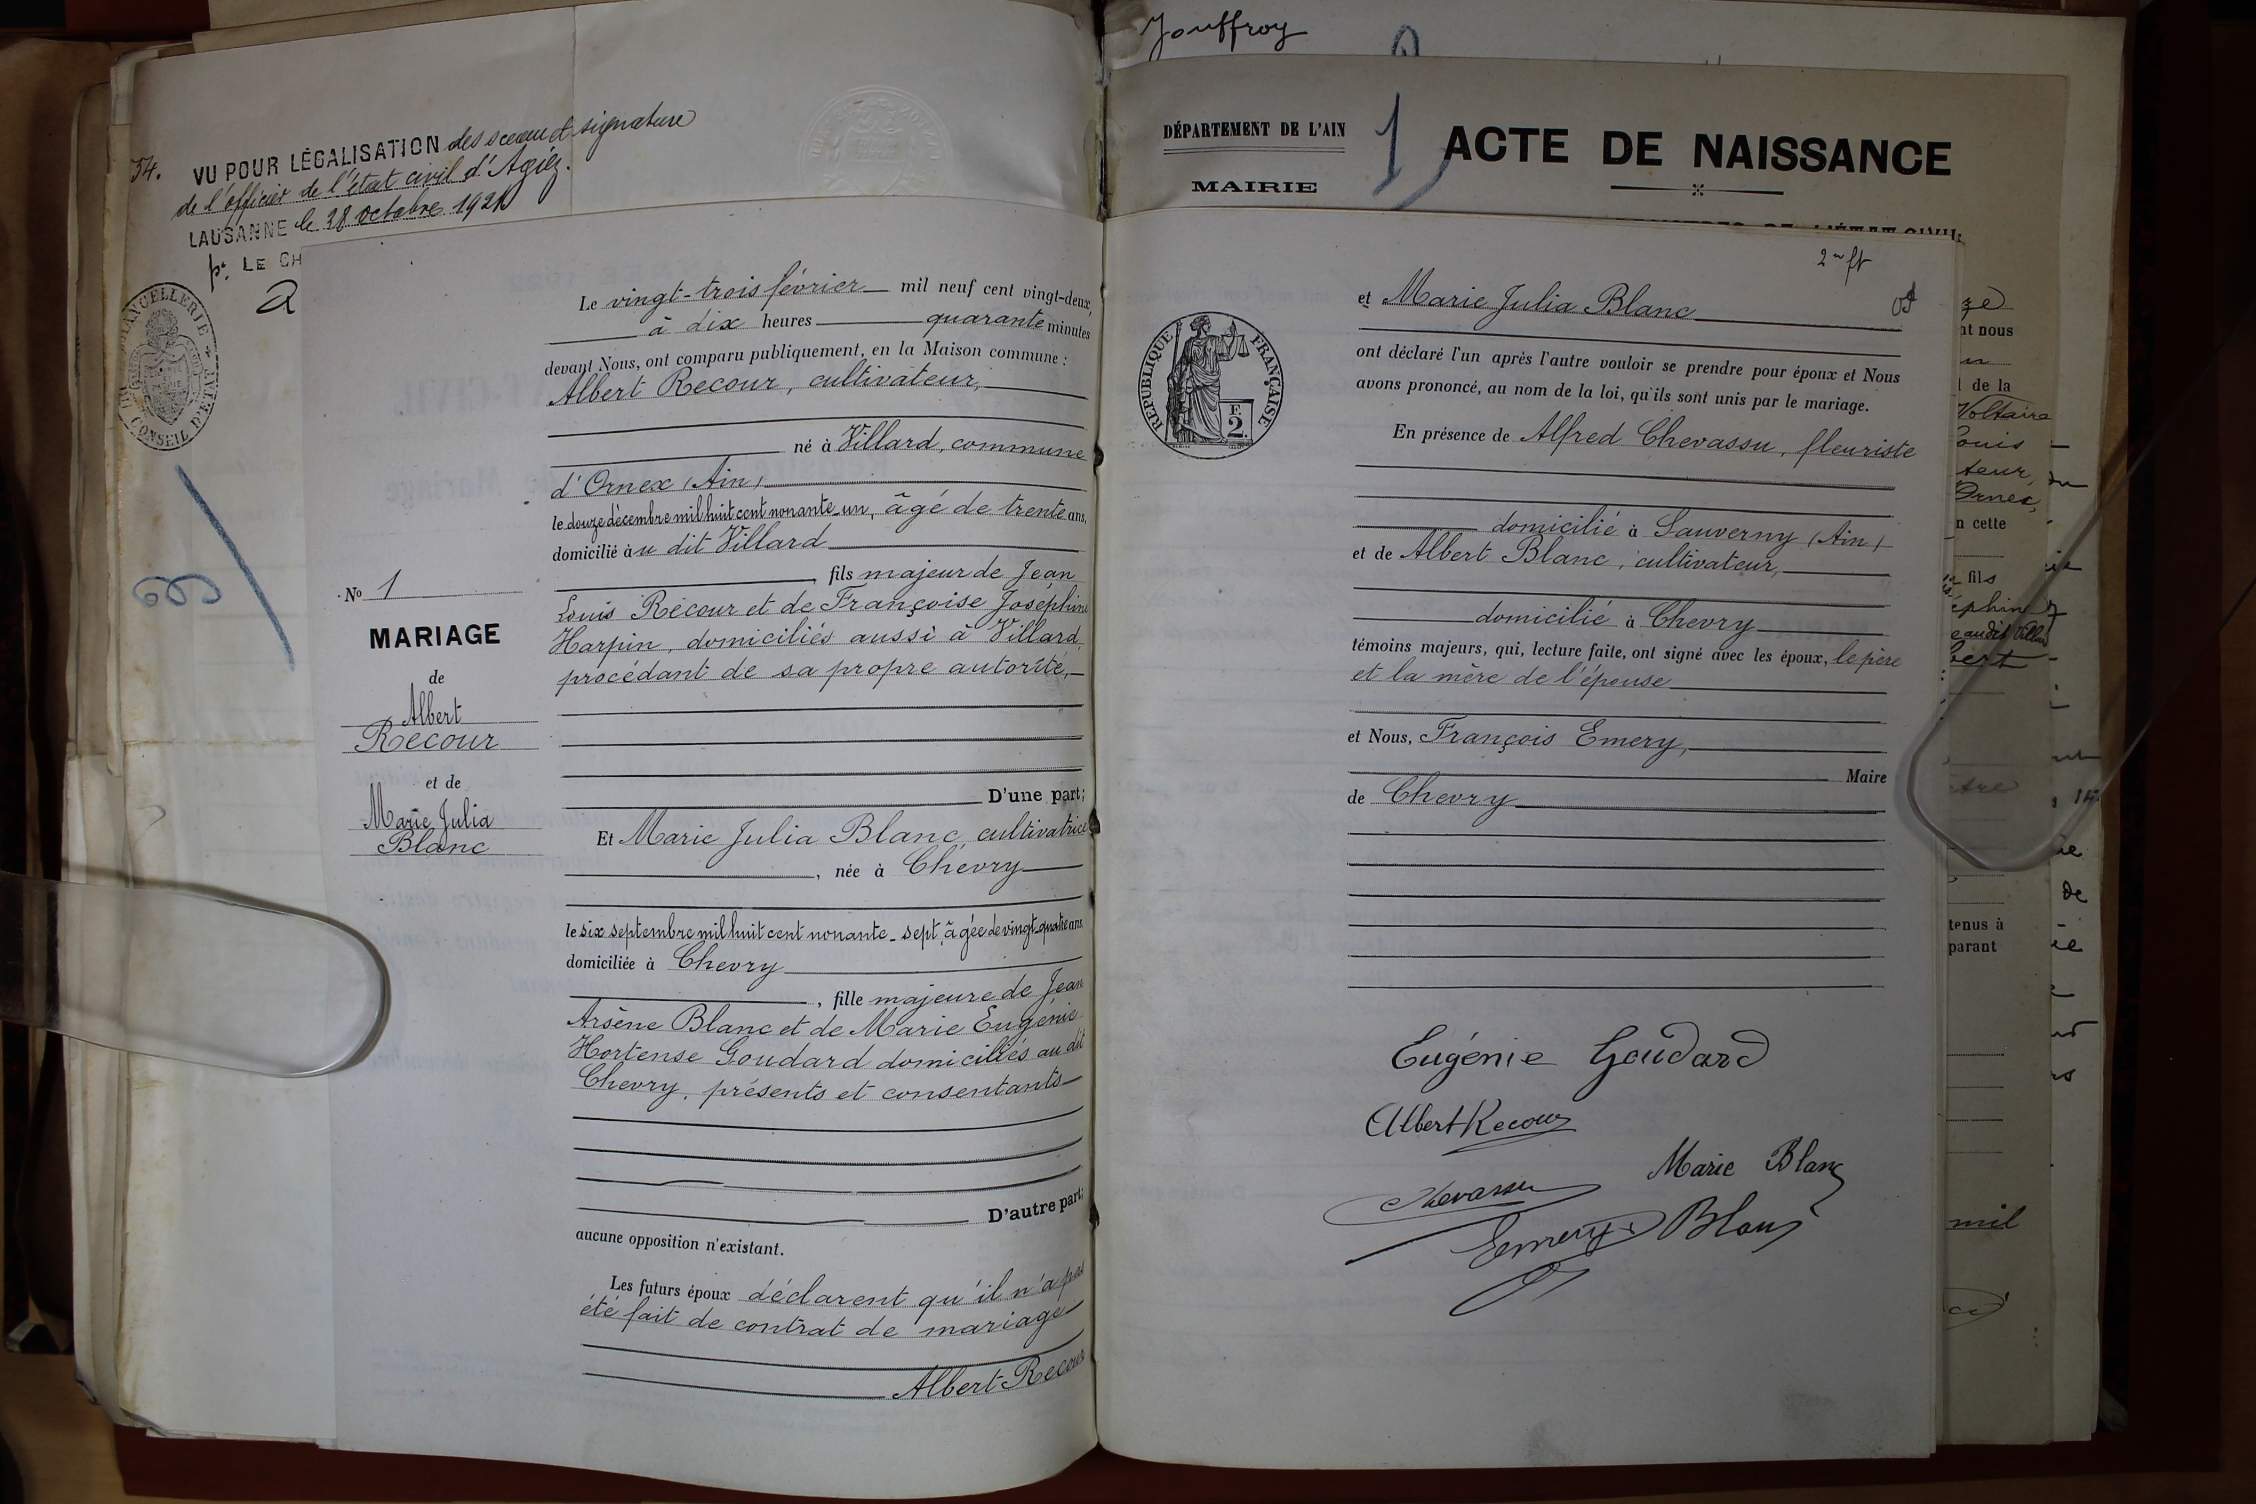 54. VU POUR LÉGALISATION des sceau et signature
de l'officier de l'état civil d'Agiez.
LAUSANNE le 28 octobre 1921
p. LE CH
CHANCELLERIE
CONSEIL D'ETAT
No 1
MARIAGE
de
Albert
Recour
et de
Marie Julia
Blanc
Le vingt-trois février mil neuf cent vingt-deux,
à dix heures quarante minutes
devant Nous, ont comparu publiquement, en la Maison commune :
Albert Recour, cultivateur,
né à Villard, commune
d'Ornex (Ain)
le douze décembre mil huit cent nonante-un, âgé de trente ans,
domicilié à u dit Villard
, fils majeur de Jean
Louis Recour et de Françoise Joséphine
Harpin, domiciliés aussi à Villard,
procédant de sa propre autorité,
D'une part;
Et Marie Julia Blanc, cultivatrice
, née à Chevry
le six septembre mil huit cent nonante-sept, âgée de vingt-quatre ans
domiciliée à Chevry
, fille majeure de Jean
Arsène Blanc et de Marie Eugénie
Hortense Goudard domiciliés au dit
Chevry, présents et consentants
D'autre part;
aucune opposition n'existant.
Les futurs époux déclarent qu'il n'a pas
été fait de contrat de mariage
Albert Recour
Jouffroy
DÉPARTEMENT DE L'AIN
MAIRIE
1
ACTE DE NAISSANCE
RÉPUBLIQUE FRANÇAISE
F.
2
et Marie Julia Blanc
ont déclaré l'un après l'autre vouloir se prendre pour époux et Nous
avons prononcé, au nom de la loi, qu'ils sont unis par le mariage.
En présence de Alfred Chevassu, fleuriste
domicilié à Sauverny (Ain)
et de Albert Blanc, cultivateur,
domicilié à Chevry
témoins majeurs, qui, lecture faite, ont signé avec les époux, le père
et la mère de l'épouse
et Nous, François Emery,
Maire
de Chevry
Eugénie Goudard
Albert Recour
Marie Blanc
Chevassu
Emery
Blanc
nt nous
de la
Voltaire
Louis
teur,
Ornex,
n cette
fils
éphin
audit Villard
bert
tenus à
parant
mil